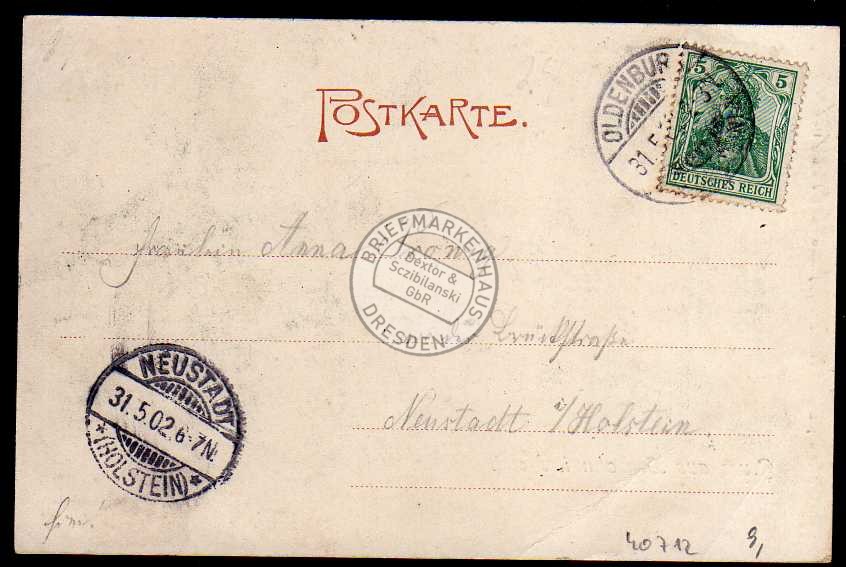 POSTKARTE.
OLDENBUR
31.5
5 5
DEUTSCHES REICH
Fräulein Anna
BRIEFMARKENHAUS
Dextor &
Sczibilanski
GbR
DRESDEN
Brückstraße
Neustadt i/Holstein.
NEUSTADT
31.5.02.6-7N.
*(HOLSTEIN)*
40712